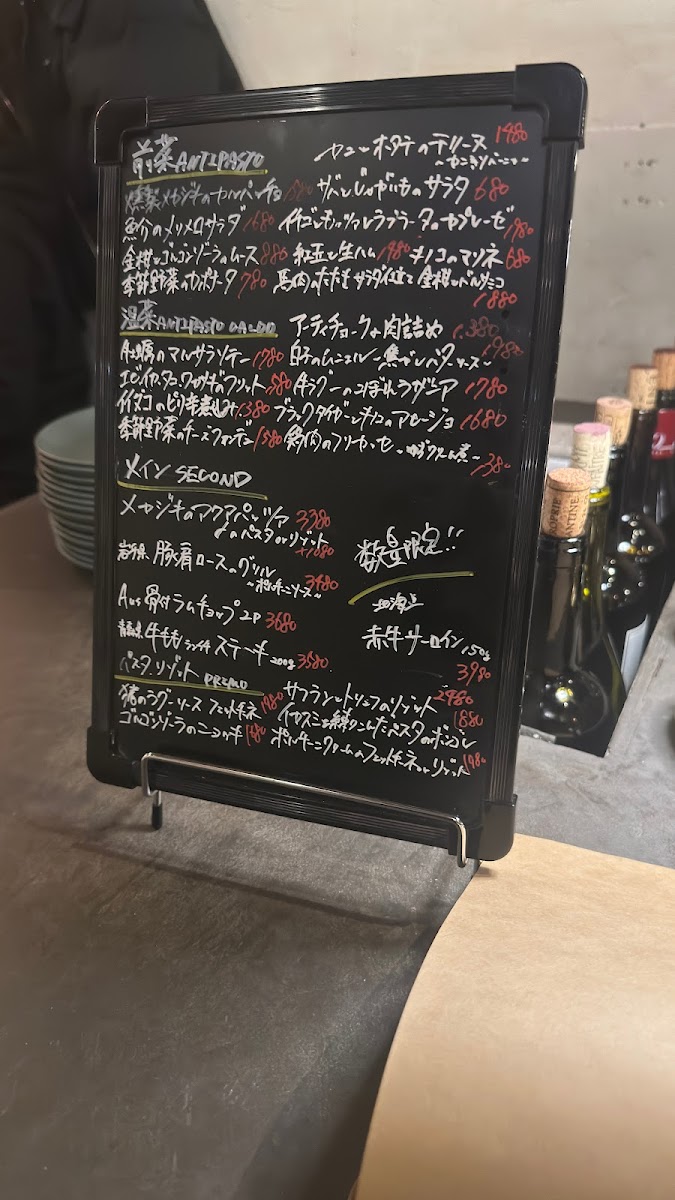 前菜 ANTIPASTO
カニとホタテのテリーヌ 1480
燻製メカジキのカルパッチョ サバとじゃがいものサラダ 680
魚介のメリメロサラダ 1680 イチゴとモッツァレラブラータのカプレーゼ 1980
金柑とゴルゴンゾーラのムース 880 紅玉と生ハム 1980 キノコのマリネ 680
季節野菜のカポナータ 780 馬肉のたたき サラダ仕立て 金柑とバルサミコ
1880
温菜 ANTIPASTO CALDO アーティチョークと肉詰め 1380
牡蠣のマルサラソテー 1780 白子のムニエル ~焦がしバターソース~ 1980
エビイカタコワカサギのフリット 牛ラグーのこぼれラザニア 1780
イイダコのピリ辛煮込み 1380 ブラックタイガーとキノコのアヒージョ 1680
季節野菜のチーズフォンデュ 1580 鶏肉のフリカッセ クリーム煮~
1380
メイン SECOND
メカジキのアクアパッツァ 3380
のパスタ or リゾット
+1080
数量限定!!
岩手県 豚肩ロースのグリル
~ポルチーニソース~ 3480
北海道
Aus 骨付ラムチョップ 2P 3680
赤牛サーロイン 150g
青森県 牛もも ランイチ ステーキ 200g 3580
3980
パスタ・リゾット PRIMO
サフランとトリュフのリゾット 2480
猪のラグーソース フェットチネ 1980 イカスミを練りこんだパスタのボンゴレ 1880
ゴルゴンゾーラのニョッキ 1680 ポルチーニクリームのフェットチーネ or リゾット 1980